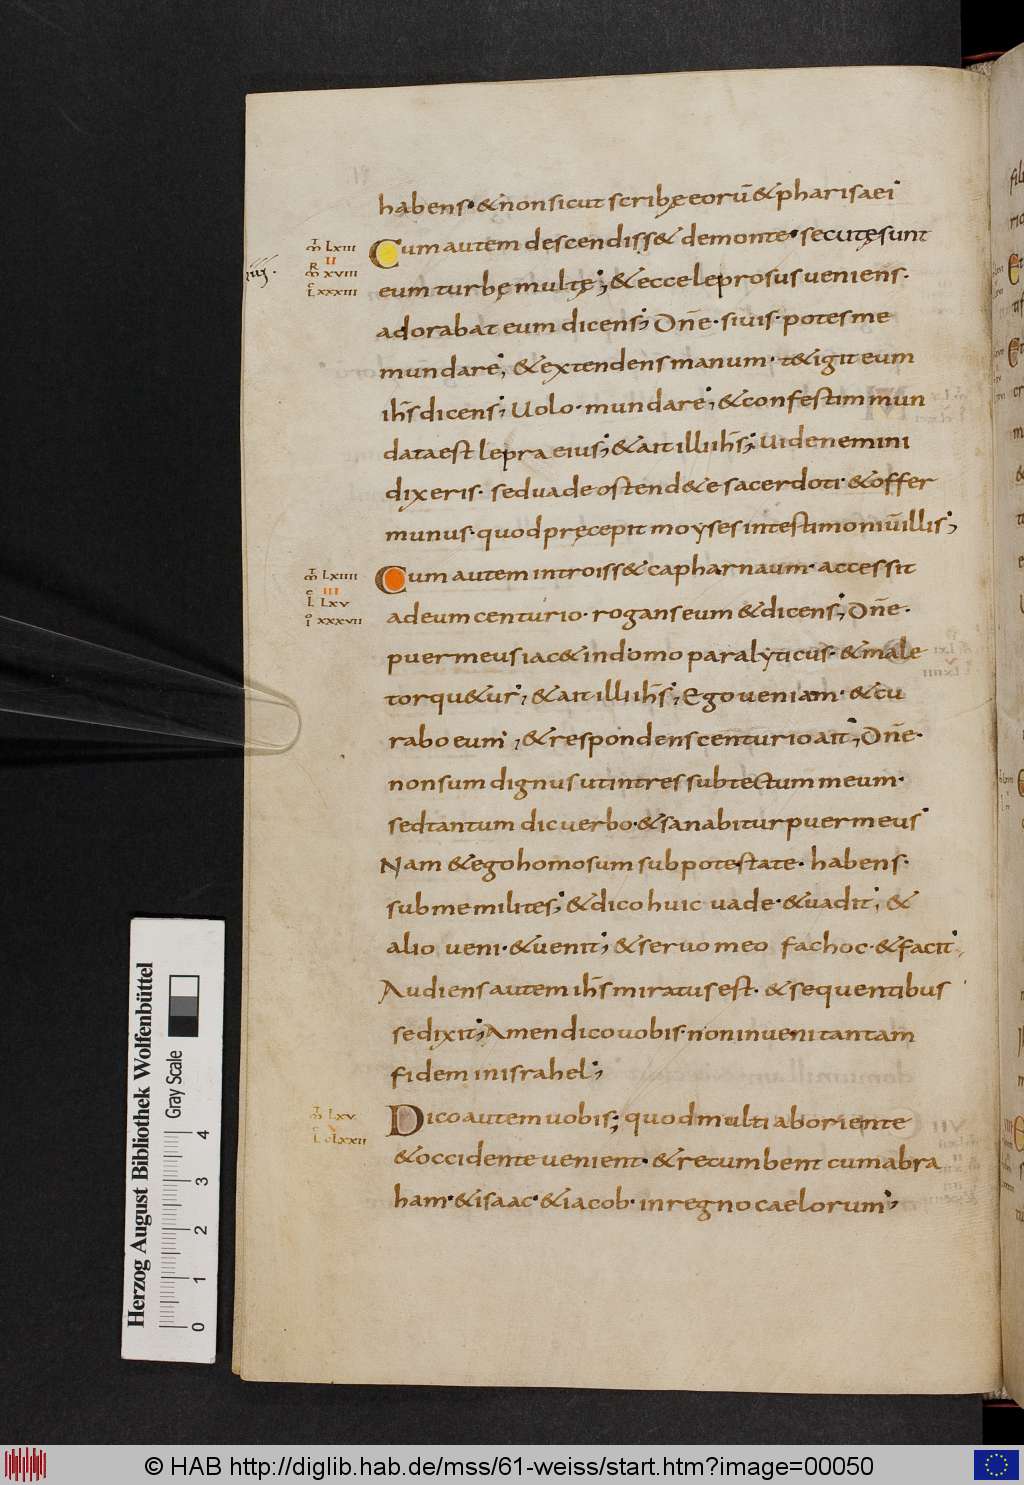 habens· &non sicut scribę eorū & pharisaei
mt̄ Lxiii
II
mr̄ xviii
L xxxiii
iiii·
Cum autem descendiss& demonte· secutę sunt
eum turbę multę; & ecce leprosus veniens·
adorabat eum dicens; Dn̄e· siuis· potes me
mundare; & extendens manum· t&igit eum
ih̄s dicens; Uolo· mundare; & confestim mun
data est lepra eius; & ait illi ih̄s; Uide nemini
dixeris· sed uade ostend&e sacerdoti· & offer
munus· quod pręcepit moyses intestimoniū illis;
mt̄ Lxiiii
III
L Lxv
io xxxvii
Cum autem introiss& capharnaum· accessit
ad eum centurio· rogans eum & dicens; Dn̄e·
puer meus iac& indomo paralyticus· & male
torqu&ur; & ait illi ih̄s; Ego veniam· & cu
rabo eum; & respondens centurio ait; Dn̄e·
non sum dignus ut intres sub tectum meum·
sed tantum dic uerbo· & sanabitur puer meus
Nam & ego homo sum sub potestate· habens·
sub me milites; & dico huic uade· & uadit; &
alio ueni· & uenit; & seruo meo fac hoc· & facit
Audiens autem ih̄s miratus est· & sequentibus
se dixit; Amen dico uobis· non inueni tantam
fidem in israhel;
mt̄ Lxv
L cLxxii
Dico autem uobis; quod multi ab oriente
& occidente uenient· & recumbent cum abra
ham· & isaac· & iacob· in regno caelorum;
Herzog August Bibliothek Wolfenbüttel
Gray Scale
0 1 2 3 4
© HAB http://diglib.hab.de/mss/61-weiss/start.htm?image=00050